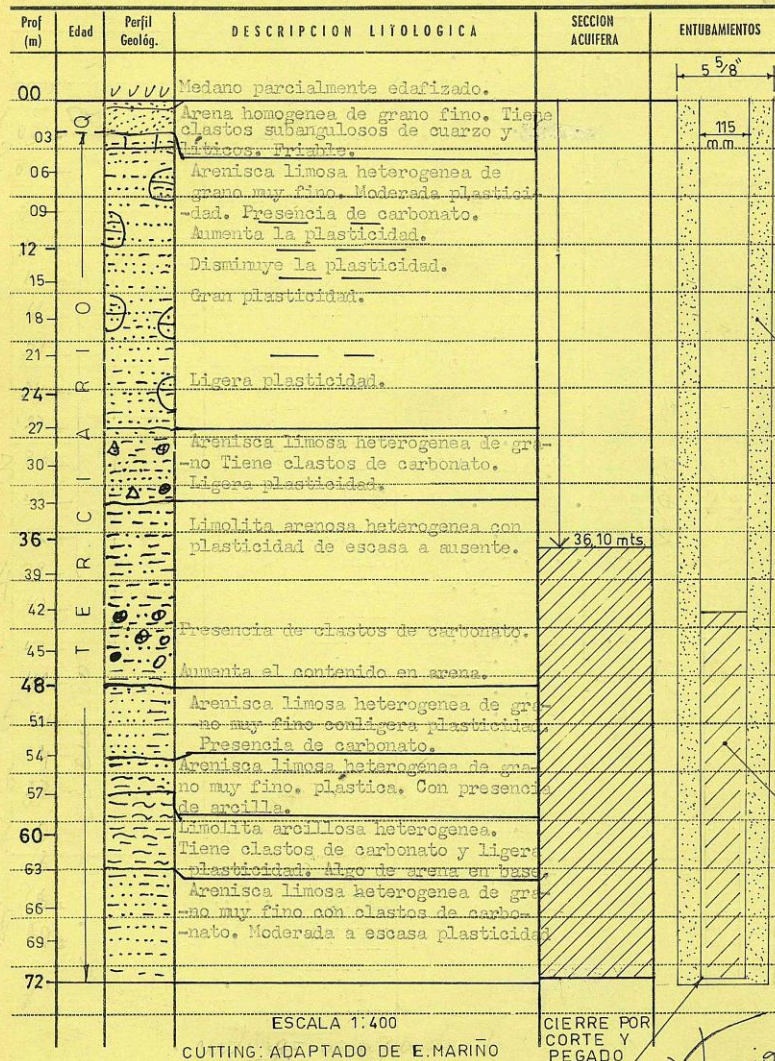 Prof (m)
Edad
Perfil Geológ.
DESCRIPCION LITOLOGICA
SECCION ACUIFERA
ENTUBAMIENTOS
5 5/8"
115 m.m
00
03
06
09
12
15
18
21
24
27
30
33
36
39
42
45
48
51
54
57
60
63
66
69
72
Q
TERCIARIO
Medano parcialmente edafizado.
Arena homogenea de grano fino. Tiene
clastos subangulosos de cuarzo y
líticos. Friable.
Arenisca limosa heterogenea de
grano muy fino. Moderada plastici-
-dad. Presencia de carbonato.
Aumenta la plasticidad.
Disminuye la plasticidad.
Gran plasticidad.
Ligera plasticidad.
Arenisca limosa heterogenea de gra-
-no Tiene clastos de carbonato.
Ligera plasticidad.
Limolita arenosa heterogenea con
plasticidad de escasa a ausente.
Presencia de clastos de carbonato.
Aumenta el contenido en arena.
Arenisca limosa heterogenea de gra-
-no muy fino conligera plasticidad.
Presencia de carbonato.
Arenisca limosa heterogénea de gra-
no muy fino, plástica. Con presencia
de arcilla.
Limolita arcillosa heterogenea.
Tiene clastos de carbonato y ligera
plasticidad. Algo de arena en base.
Arenisca limosa heterogenea de gra-
-no muy fino con clastos de carbo-
-nato. Moderada a escasa plasticidad
36,10 mts.
ESCALA 1:400
CUTTING: ADAPTADO DE E.MARIÑO
CIERRE POR
CORTE Y
PEGADO